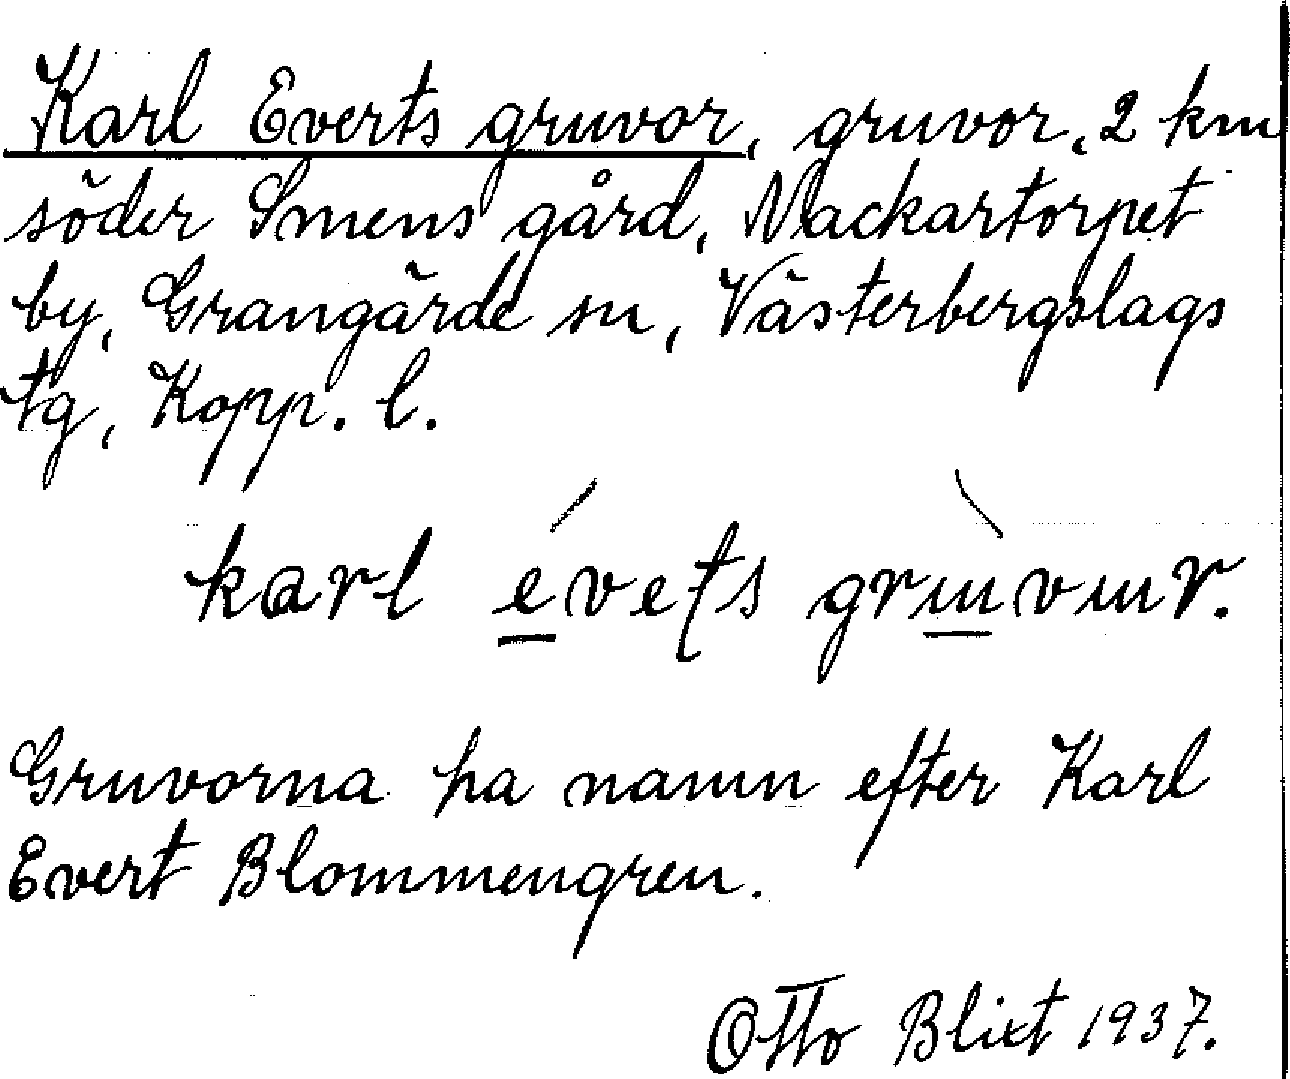 Karl Everts gruvor, gruvor, 2 km
söder Smens gård, Nackartorpet
by, Grangärde sn, Västerbergslags
tg, Kopp. l.
karl evets gruvur.
Gruvorna ha namn efter Karl
Evert Blommengren.
Otto Blixt 1937.